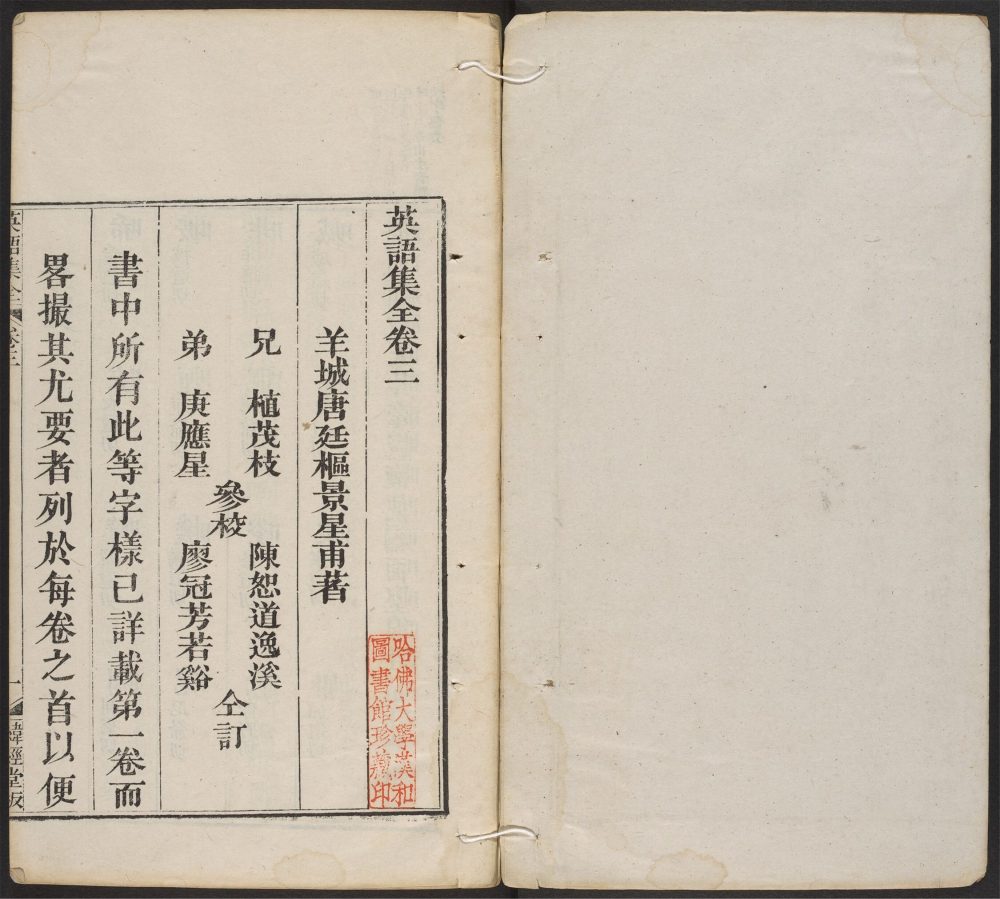 英語集全卷三
羊城唐廷樞景星甫著
兄 植茂枝
弟 庚應星
參校
陳恕道逸溪
廖冠芳若谿
仝訂
書中所有此等字樣已詳載第一卷而
畧撮其尤要者列於每卷之首以便
英語集全
卷三
一
緯經堂版
哈佛大學漢和
圖書館珍藏印